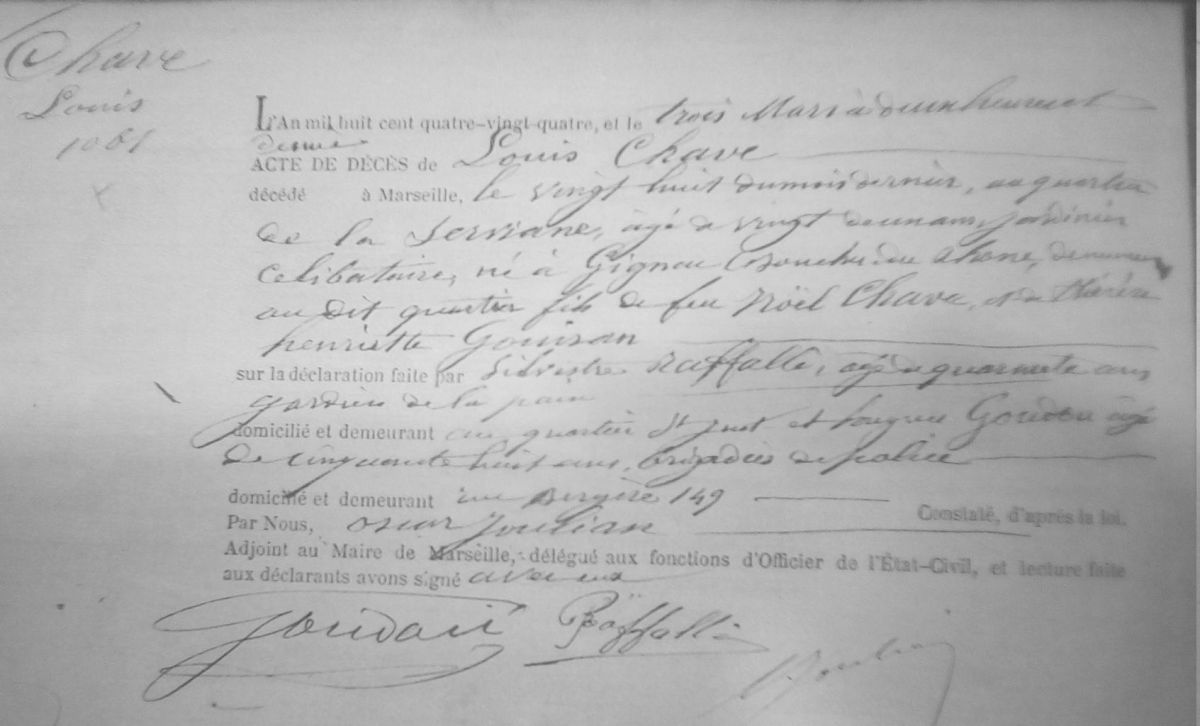 Chave
Louis
1061
L'An mil huit cent quatre-vingt-quatre, et le trois Mars à deux heures et
demie
ACTE DE DÉCÈS de Louis Chave
décédé à Marseille, le vingt huit du mois dernier, au quartier
de la Serviane, âgé de vingt deux ans, jardinier
celibataire, né à Gignac Bouches du Rhône, demeurant
au dit quartier fils de feu Noël Chave, et de Thérèse
henriette Gouiran
sur la déclaration faite par Silvestre Raffalli, agé de quarante ans
gardien de la paix
domicilié et demeurant au quartier St Just et Goudou âgé
de cinquante huit ans, brigadier de police
domicilié et demeurant rue Bergère 149
Constaté, d'après la loi.
Par Nous, oscar Joulian
Adjoint au Maire de Marseille, délégué aux fonctions d'Officier de l'État-Civil, et lecture faite
aux déclarants avons signé avec eux
Raffalli